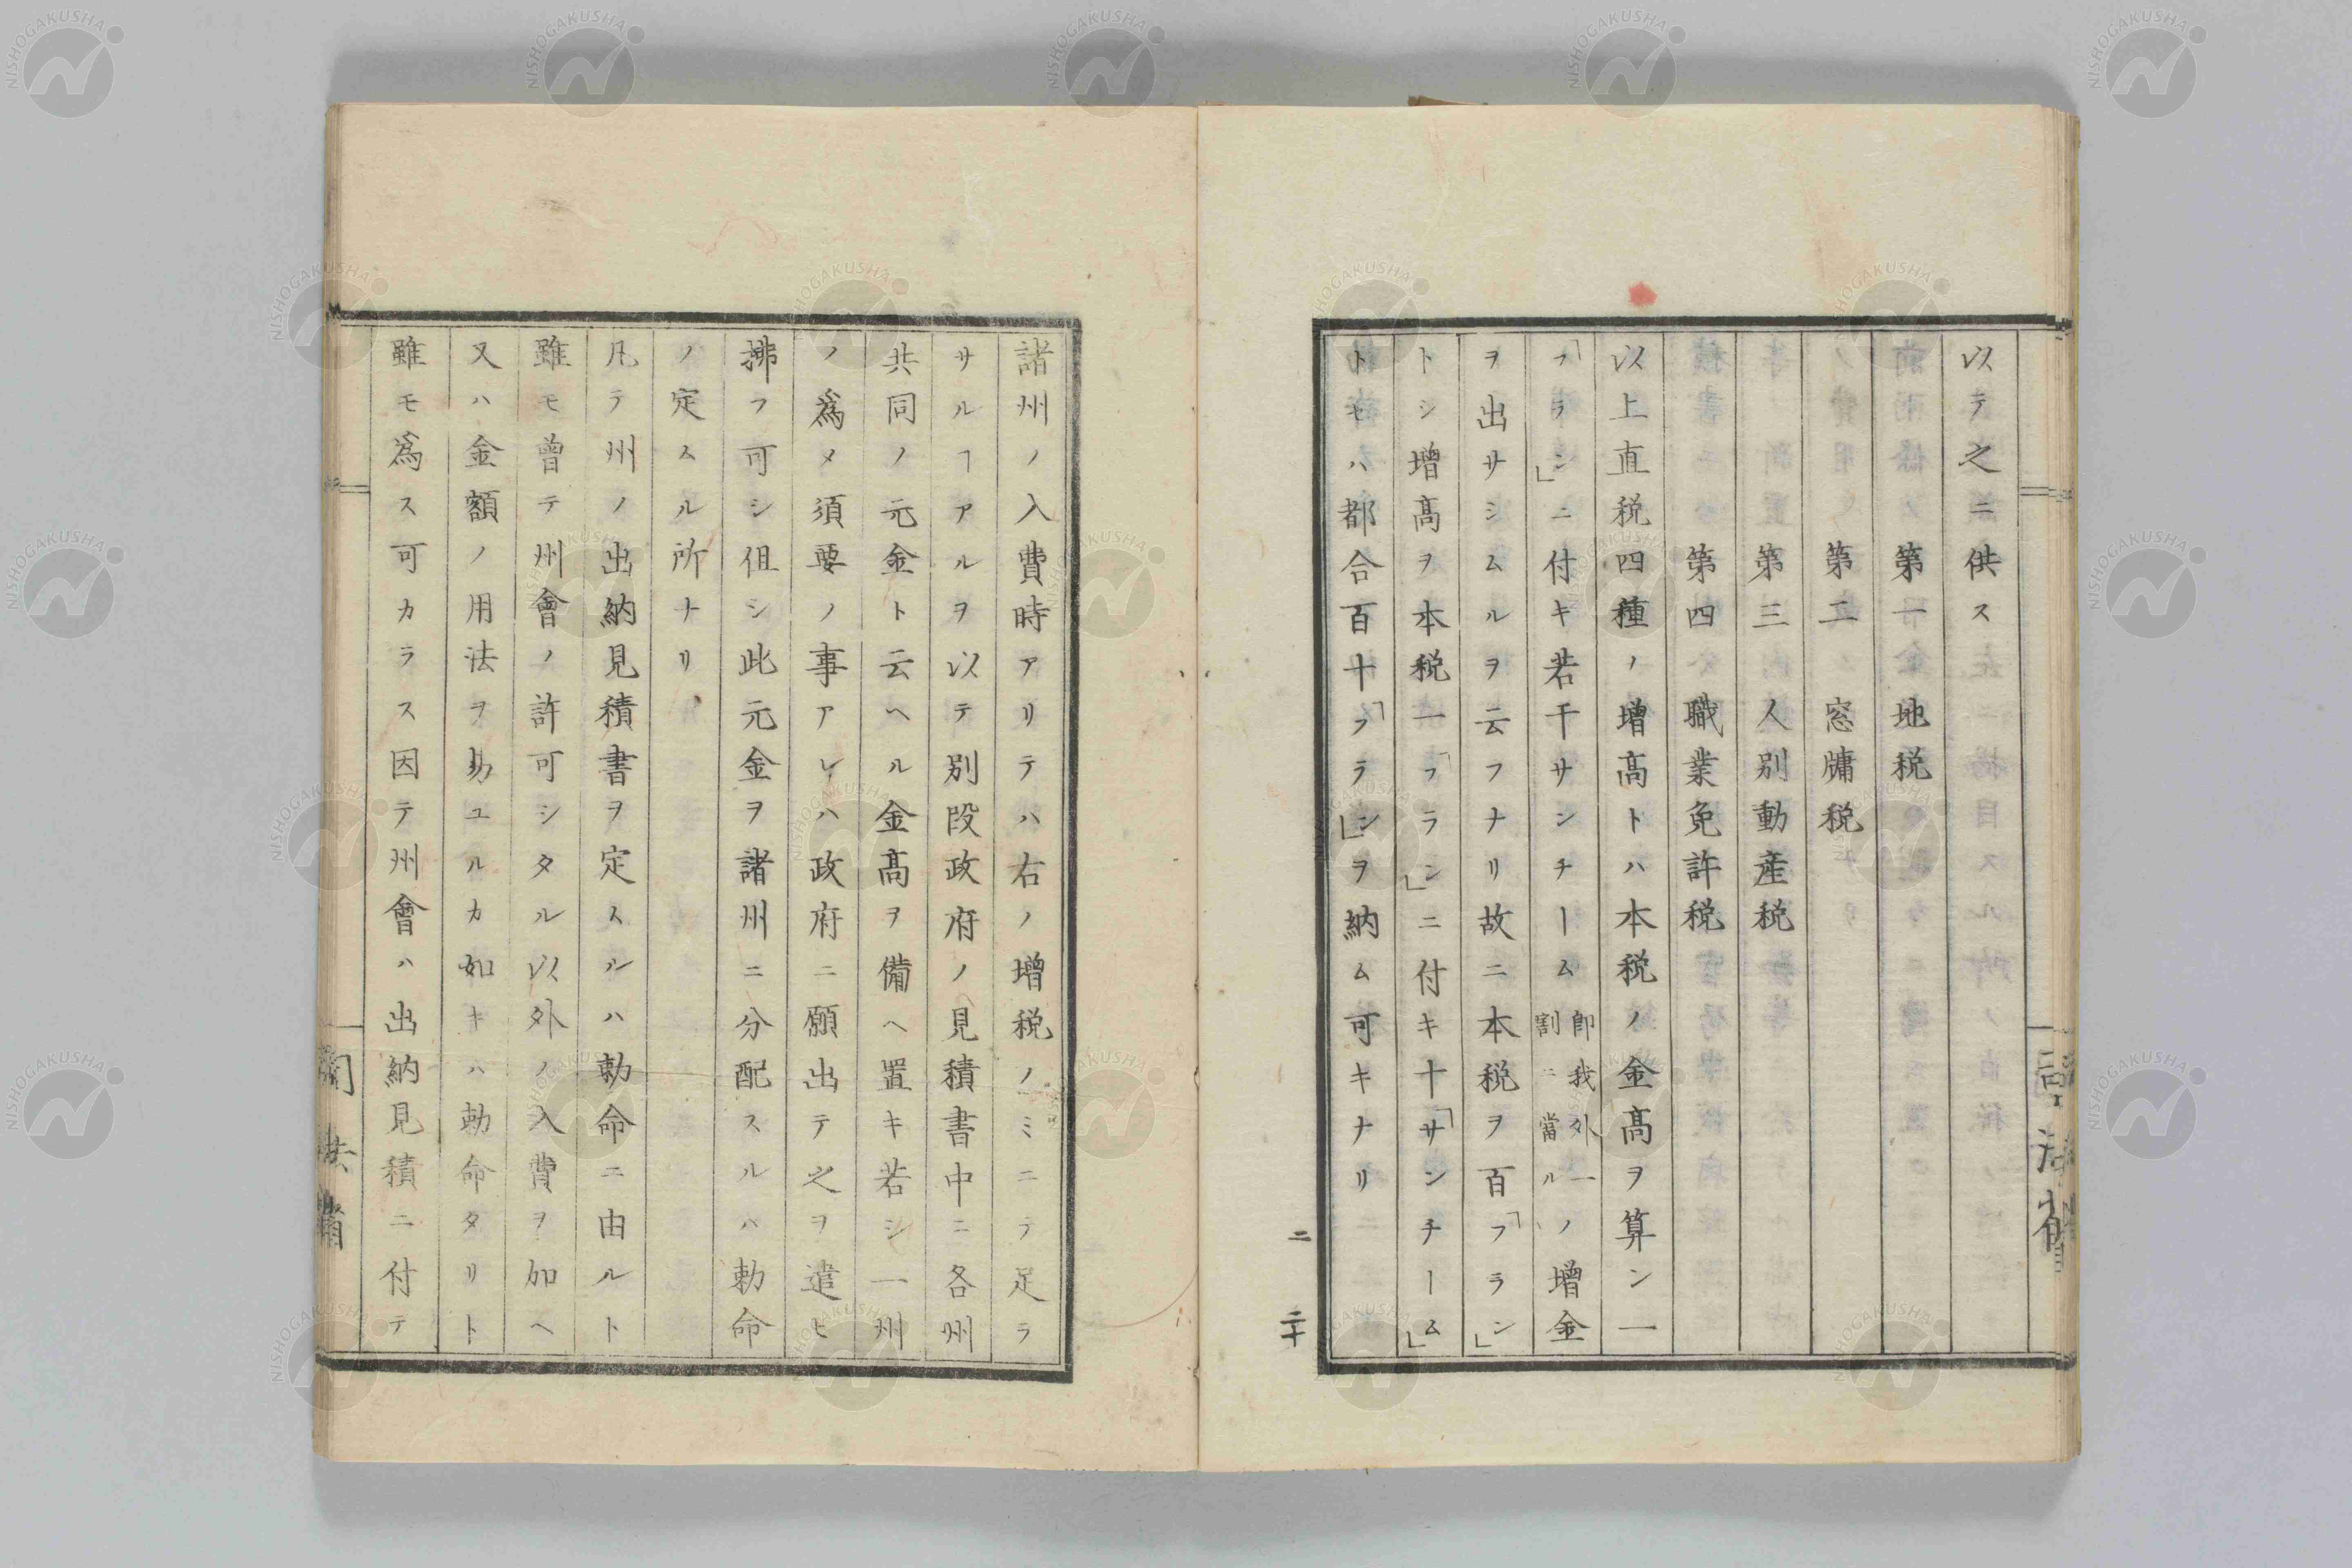 以テ之ニ供ス
第一 地税
第二 窓牗税
第三 人別動産税
第四 職業免許税
以上直税四種ノ増髙トハ本税ノ金髙ヲ算シ一
「フランニ付キ若干サンチーム即我外一割ニ當ルノ増金
ヲ出サシムルヲ云フナリ故ニ本税ヲ百「フラン」
トシ増髙ヲ本税一「フラン」ニ付キ十「サンチーム」
トセハ都合百十「フラン」ヲ納ム可キナリ
二
二十
諸州ノ入費時アリテハ右ノ増税ノミニテ足ラ
サルヿアルヲ以テ別段政府ノ見積書中ニ各州
共同ノ元金ト云ヘル金髙ヲ備ヘ置キ若シ一州
ノ爲メ須要ノ事アレハ政府ニ願出テ之ヲ遣ヒ
拂フ可シ伹シ此元金ヲ諸州ニ分配スルハ勅命
ノ定ムル所ナリ
凡テ州ノ出納見積書ヲ定ムルハ勅命ニ由ルト
雖モ曽テ州會ノ許可シタル以外ノ入費ヲ加ヘ
又ハ金額ノ用法ヲ易ユルカ如キハ勅命タリト
雖モ爲ス可カラス因テ州會ハ出納見積ニ付テ
NISHOGAKUSHA